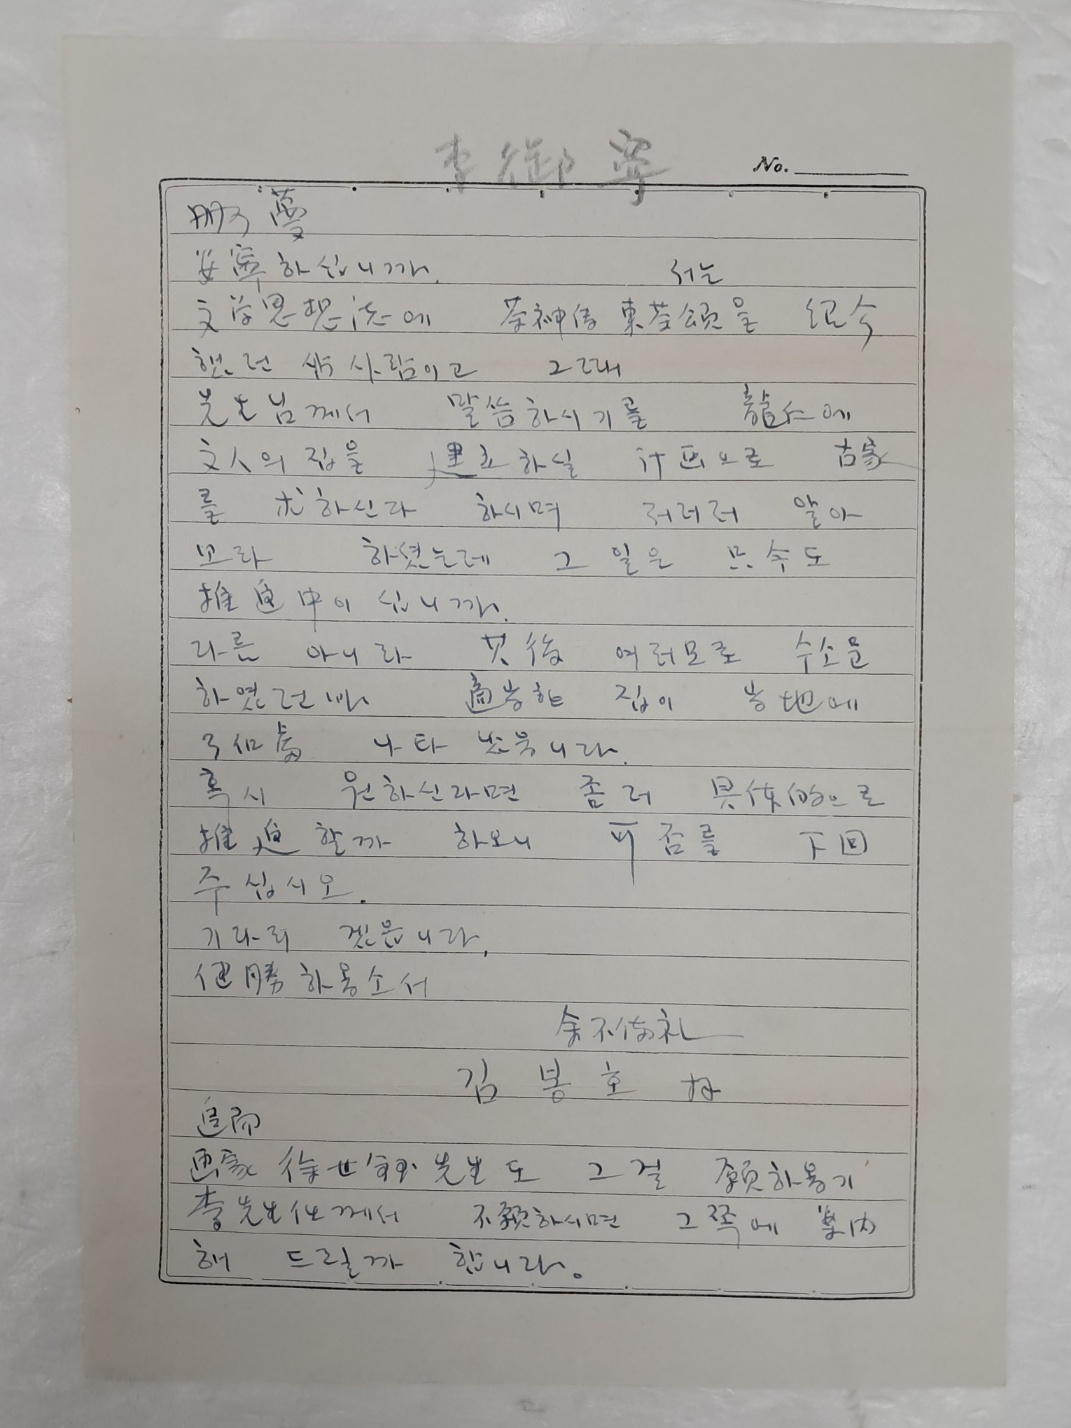 李御寧
No.
安寧하십니까.
저는
文学思想誌에 茶神傳 東茶頌을 紹介
했던 사람이고 그때
先生님께서 말씀하시기를 龍仁에
文人의 집을 建立하실 計画으로 古家
를 求하신다 하시며 저더러 알아
보라 하셨는데 그 일은 只今도
推進中이십니까.
다른 아니라 其後 여러모로 수소문
하였던바 適当한 집이 当地에
나타 났읍니다.
혹시 원하신다면 좀더 具体的으로
推進할까 하오니 可否를 下回
주십시오.
기다리 겠읍니다.
健勝하옵소서
余不備礼
김봉호 拜
追而
画家 徐世鈺 先生도 그걸 願하옵기
李先生任께서 不願하시면 그쪽에 案内
해 드릴까 합니다.